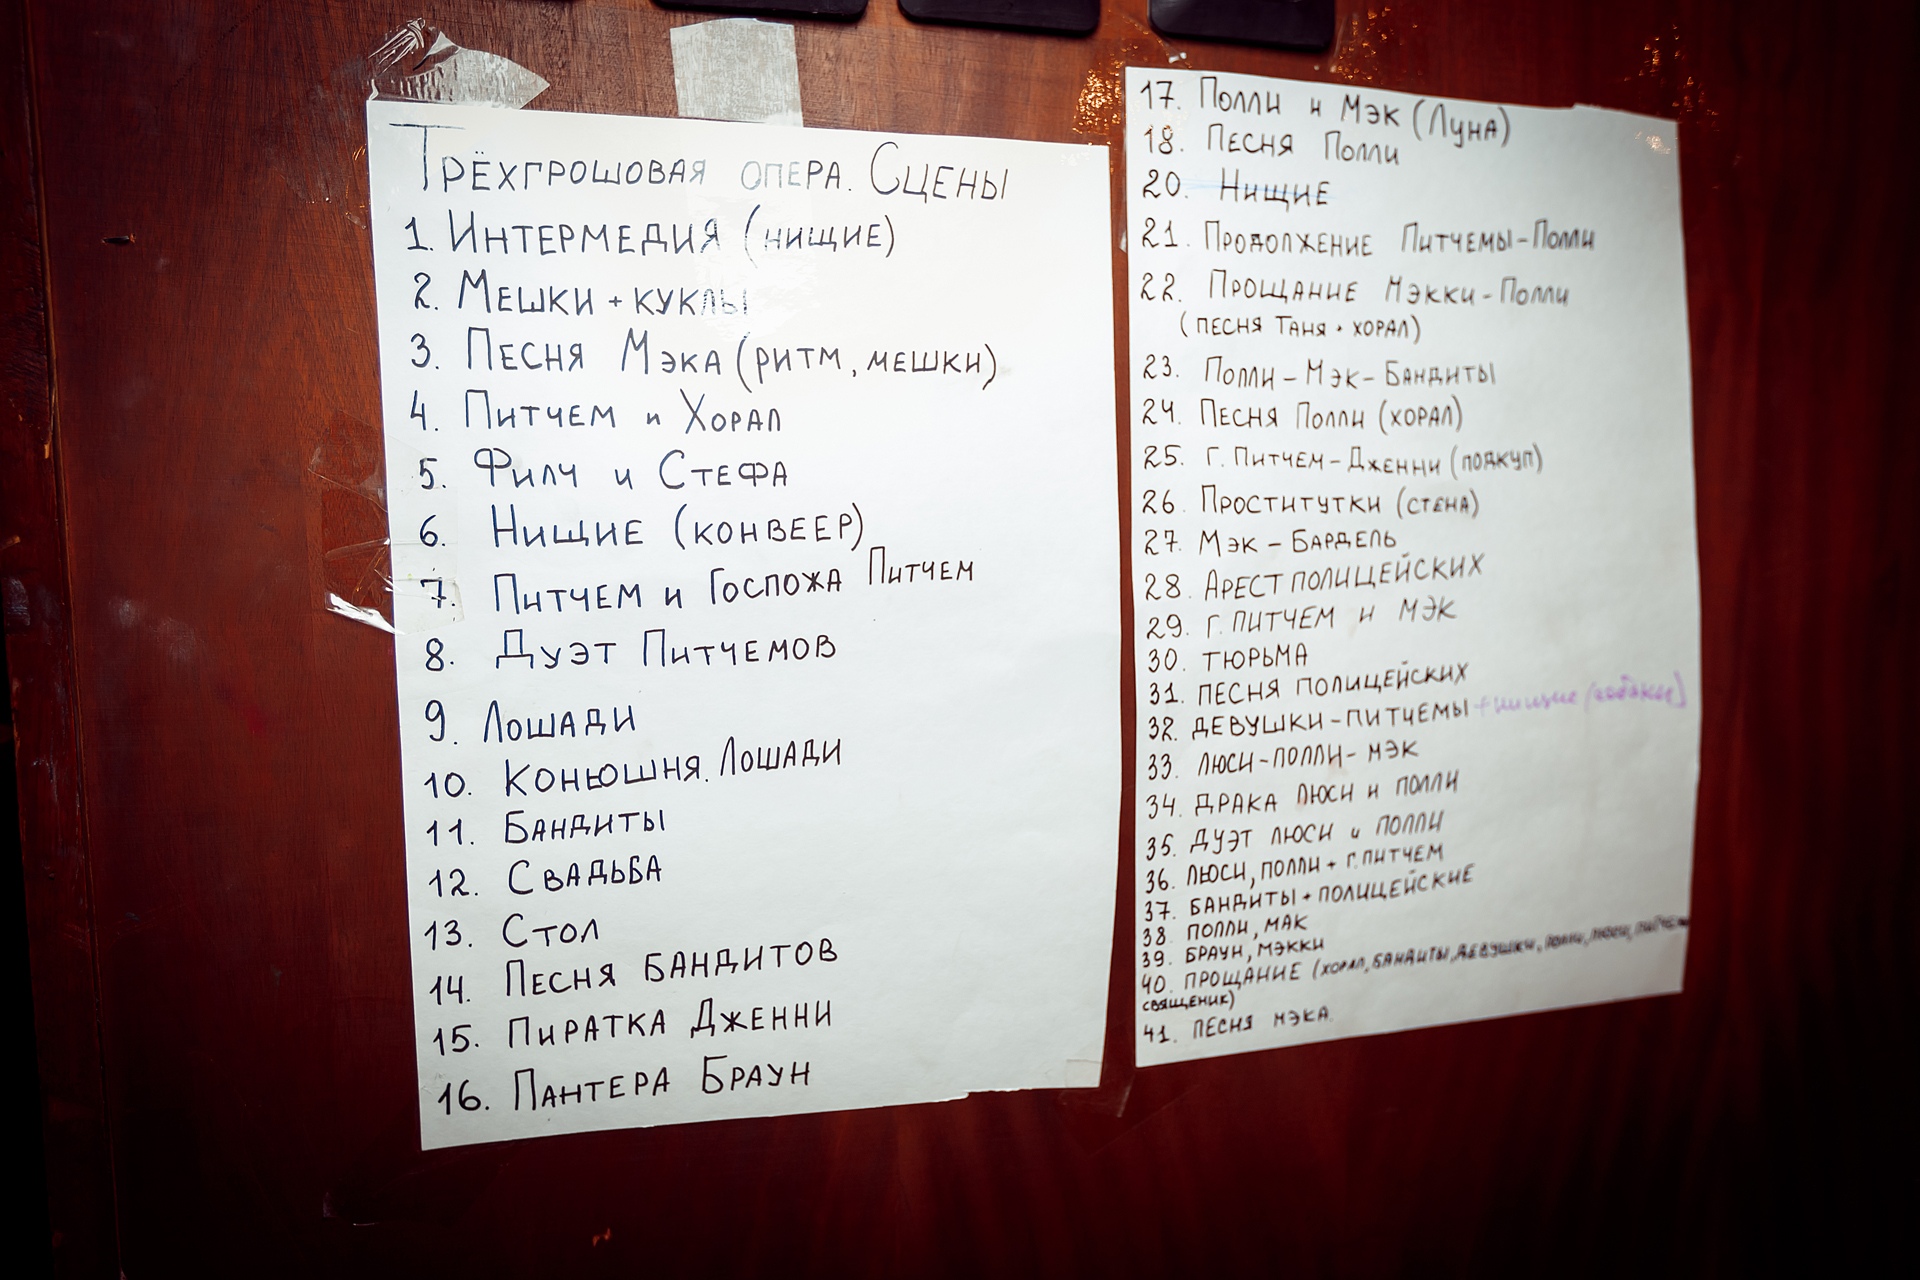 Трёхгрошовая опера. Сцены
1. Интермедия (нищие)
2. Мешки + куклы
3. Песня Мэка (ритм, мешки)
4. Питчем и Хорал
5. Филч и Стефа
6. Нищие (конвеер)
7. Питчем и Госпожа Питчем
8. Дуэт Питчемов
9. Лошади
10. Конюшня. Лошади
11. Бандиты
12. Свадьба
13. Стол
14. Песня бандитов
15. Пиратка Дженни
16. Пантера Браун
17. Полли и Мэк (Луна)
18. Песня Полли
20. Нищие
21. Продолжение Питчемы-Полли
22. Прощание Мэкки-Полли
(песня Таня + хорал)
23. Полли-Мэк-Бандиты
24. Песня Полли (хорал)
25. Г. Питчем-Дженни (подкуп)
26. Проститутки (стена)
27. Мэк - Бардель
28. Арест полицейских
29. Г. Питчем и Мэк
30. Тюрьма
31. Песня полицейских
32. Девушки-Питчемы + нищие (собаки)
33. Люси-Полли-Мэк
34. Драка Люси и Полли
35. Дуэт Люси и Полли
36. Люси, Полли + Г. Питчем
37. Бандиты + полицейские
38 Полли, Мак
39. Браун, Мэкки
40. Прощание (хорал, бандиты, девушки, Полли, Люси, Питчем
священик)
41. Песня Мэка.